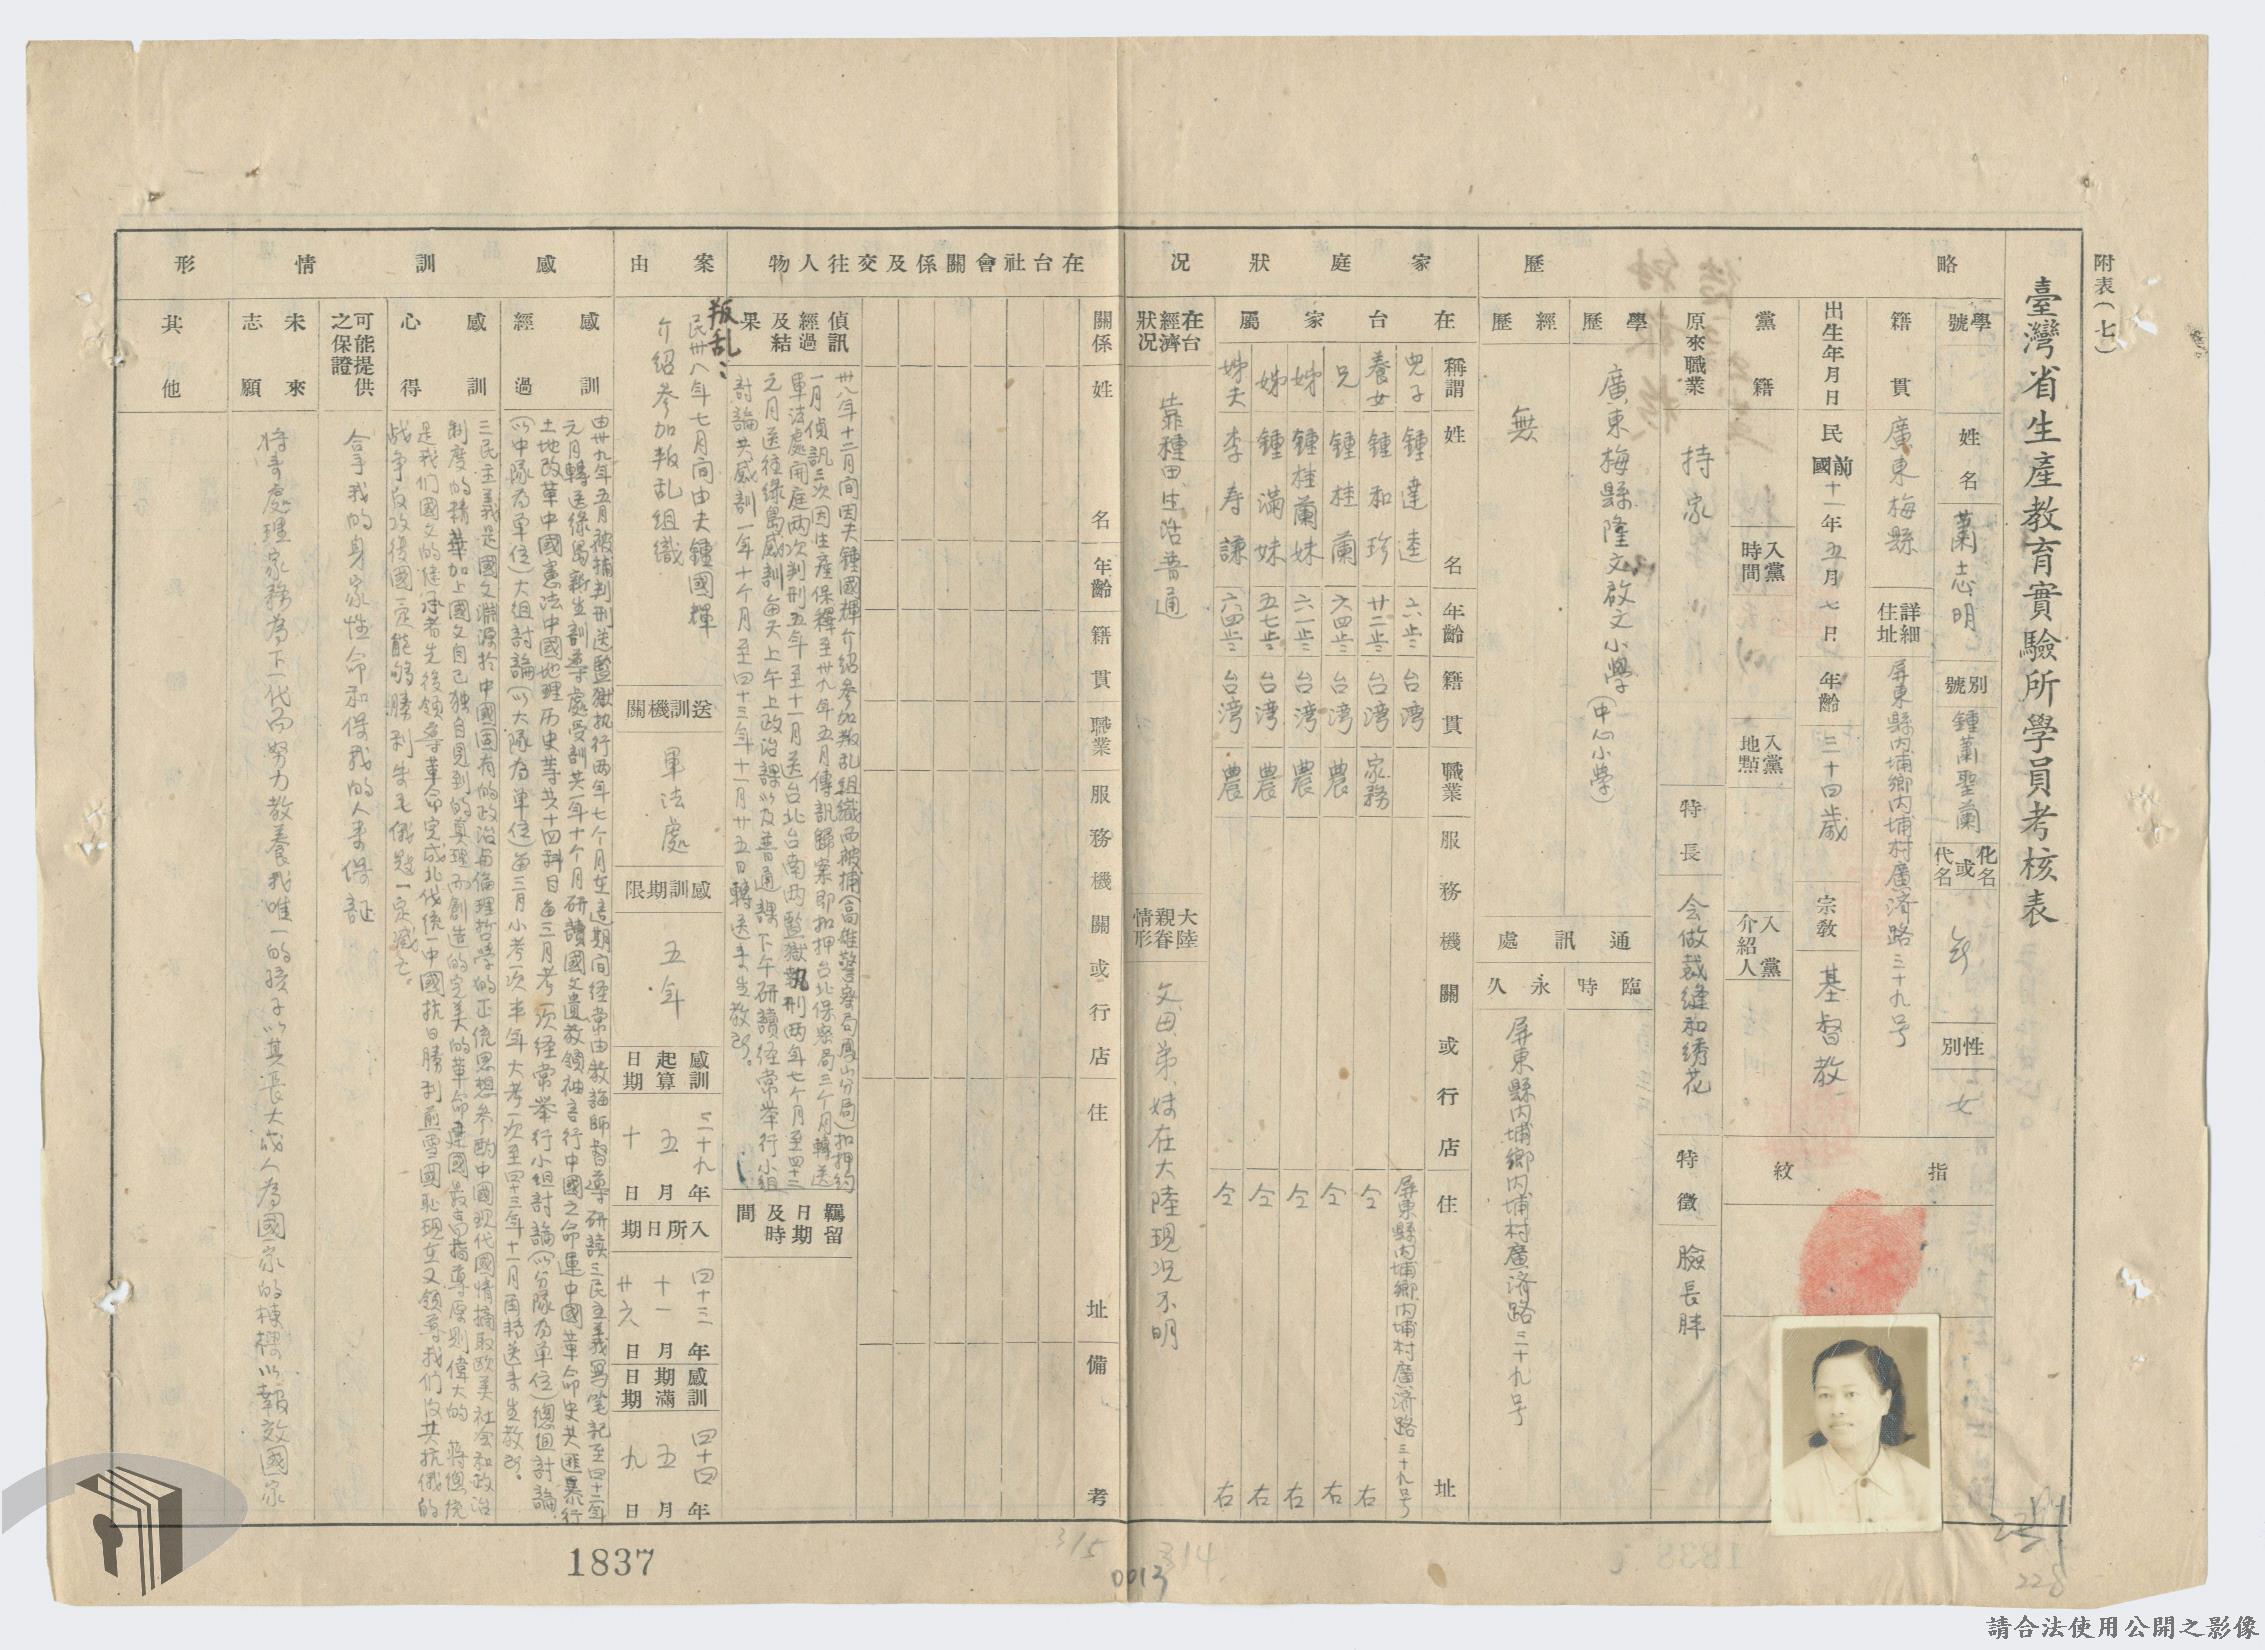 附表(七)
臺灣省生產教育實驗所學員考核表
略歷
學號
姓名
蕭志明
別號
鍾蕭聖蘭
化名或代名
無
性別
女
籍貫
廣東梅縣
詳細住址
屏東縣內埔鄉內埔村廣济路三十九号
出生年月日
民國前十一年五月七日
年齡
三十四歲
宗教
基督教
指紋
黨籍
入黨時間
入黨地點
入黨介紹人
原來職業
持家
特長
会做裁縫和綉花
特徵
臉長胖
學歷
廣東梅縣隆文啟文小學(中心小學)
經歷
無
通訊處
臨時
永久
屏東縣內埔鄉內埔村廣济路三十九号
家庭狀況
在台家屬
稱謂 姓名 年齡 籍貫 職業 服務機關或行店 住址
兒子 鍾達逵 六歩 台湾 屏東縣內埔鄉內埔村廣济路三十九号
養女 鍾和珍 廿二歩 台湾 家務 仝右
兄 鍾桂蘭 六四歩 台湾 農 仝右
姊 鍾桂蘭妹 六一歩 台湾 農 仝右
姊 鍾滿妹 五七歩 台湾 農 仝右
姊夫 李寿謙 六四歩 台湾 農 仝右
在台經濟狀況
靠種田生活普通
大陸親眷情形
父母弟妹在大陸現況不明
在台社會關係及交往人物
關係 姓名 年齡 籍貫 職業 服務機關或行店 住址 備考
案由
偵訊經過及結果
卅八年十二月间因夫鍾國輝介紹參加叛乱組織而被捕(高雄警察局鳳山分局)扣押約
一月偵訊三次因生產保釋至卅九年五月傳訊歸案即扣押台北保察局三个月轉送
軍法處開庭两次判刑五年至十一月送台北台南两監獄執刑两年七个月至四十二
元月送往綠島感訓每天上午上政治課以及普通課下午研讀経常举行小組
討論共感訓一年十个月至四十三年十一月廿五日轉送来生教所。
羈留日期及時間
叛乱:
民卅八年七月间由夫鍾國輝
介紹參加叛乱組織
送訓機關
軍法處
感訓期限
五年
感訓起算日期
三十九年五月十日
入所日期
四十三年十一月廿六日
感訓期滿日期
四十四年五月九日
感訓情形
感訓經過
由卅九年五月被捕判刑送監獄执行两年七个月在這期间経常由教誨師督導研讀三民主義写笔記至四十二年
元月轉送綠島新生訓導處受訓共一年十个月研讀國父遺教領袖言行中國之命運中國革命史共匪暴行
土地改革中國憲法中國地理历史等共十四科目每三月考一次経常举行小組討論(以分隊為单位)總組討論
(以中隊為单位)大組討論(以大隊為单位)每三月小考一次半年大考一次至四十三年十一月再轉送来生教所。
感訓心得
三民主義是國父淵源於中國固有的政治与倫理哲學的正统思想參酌中國現代國情摘取欧美社会和政治
制度的精華加上國父自己独自見到的真理而創造的完美的革命建國最高指導原則偉大的 蔣總统
是我们國父的继承者先後領導革命完成北伐统一中國抗日勝利前雪國恥現在又領導我们反共抗俄的
战争反攻復國一定能够勝利朱毛俄寇一定滅亡。
可能提供之保證
拿我的身家性命和保我的人来保証
未來志願
将来處理家務為下一代而努力教養我唯一的孩子以其長大成人為國家的棟樑以報效國家
其他
1837
315
314
0013
228
請合法使用公開之影像